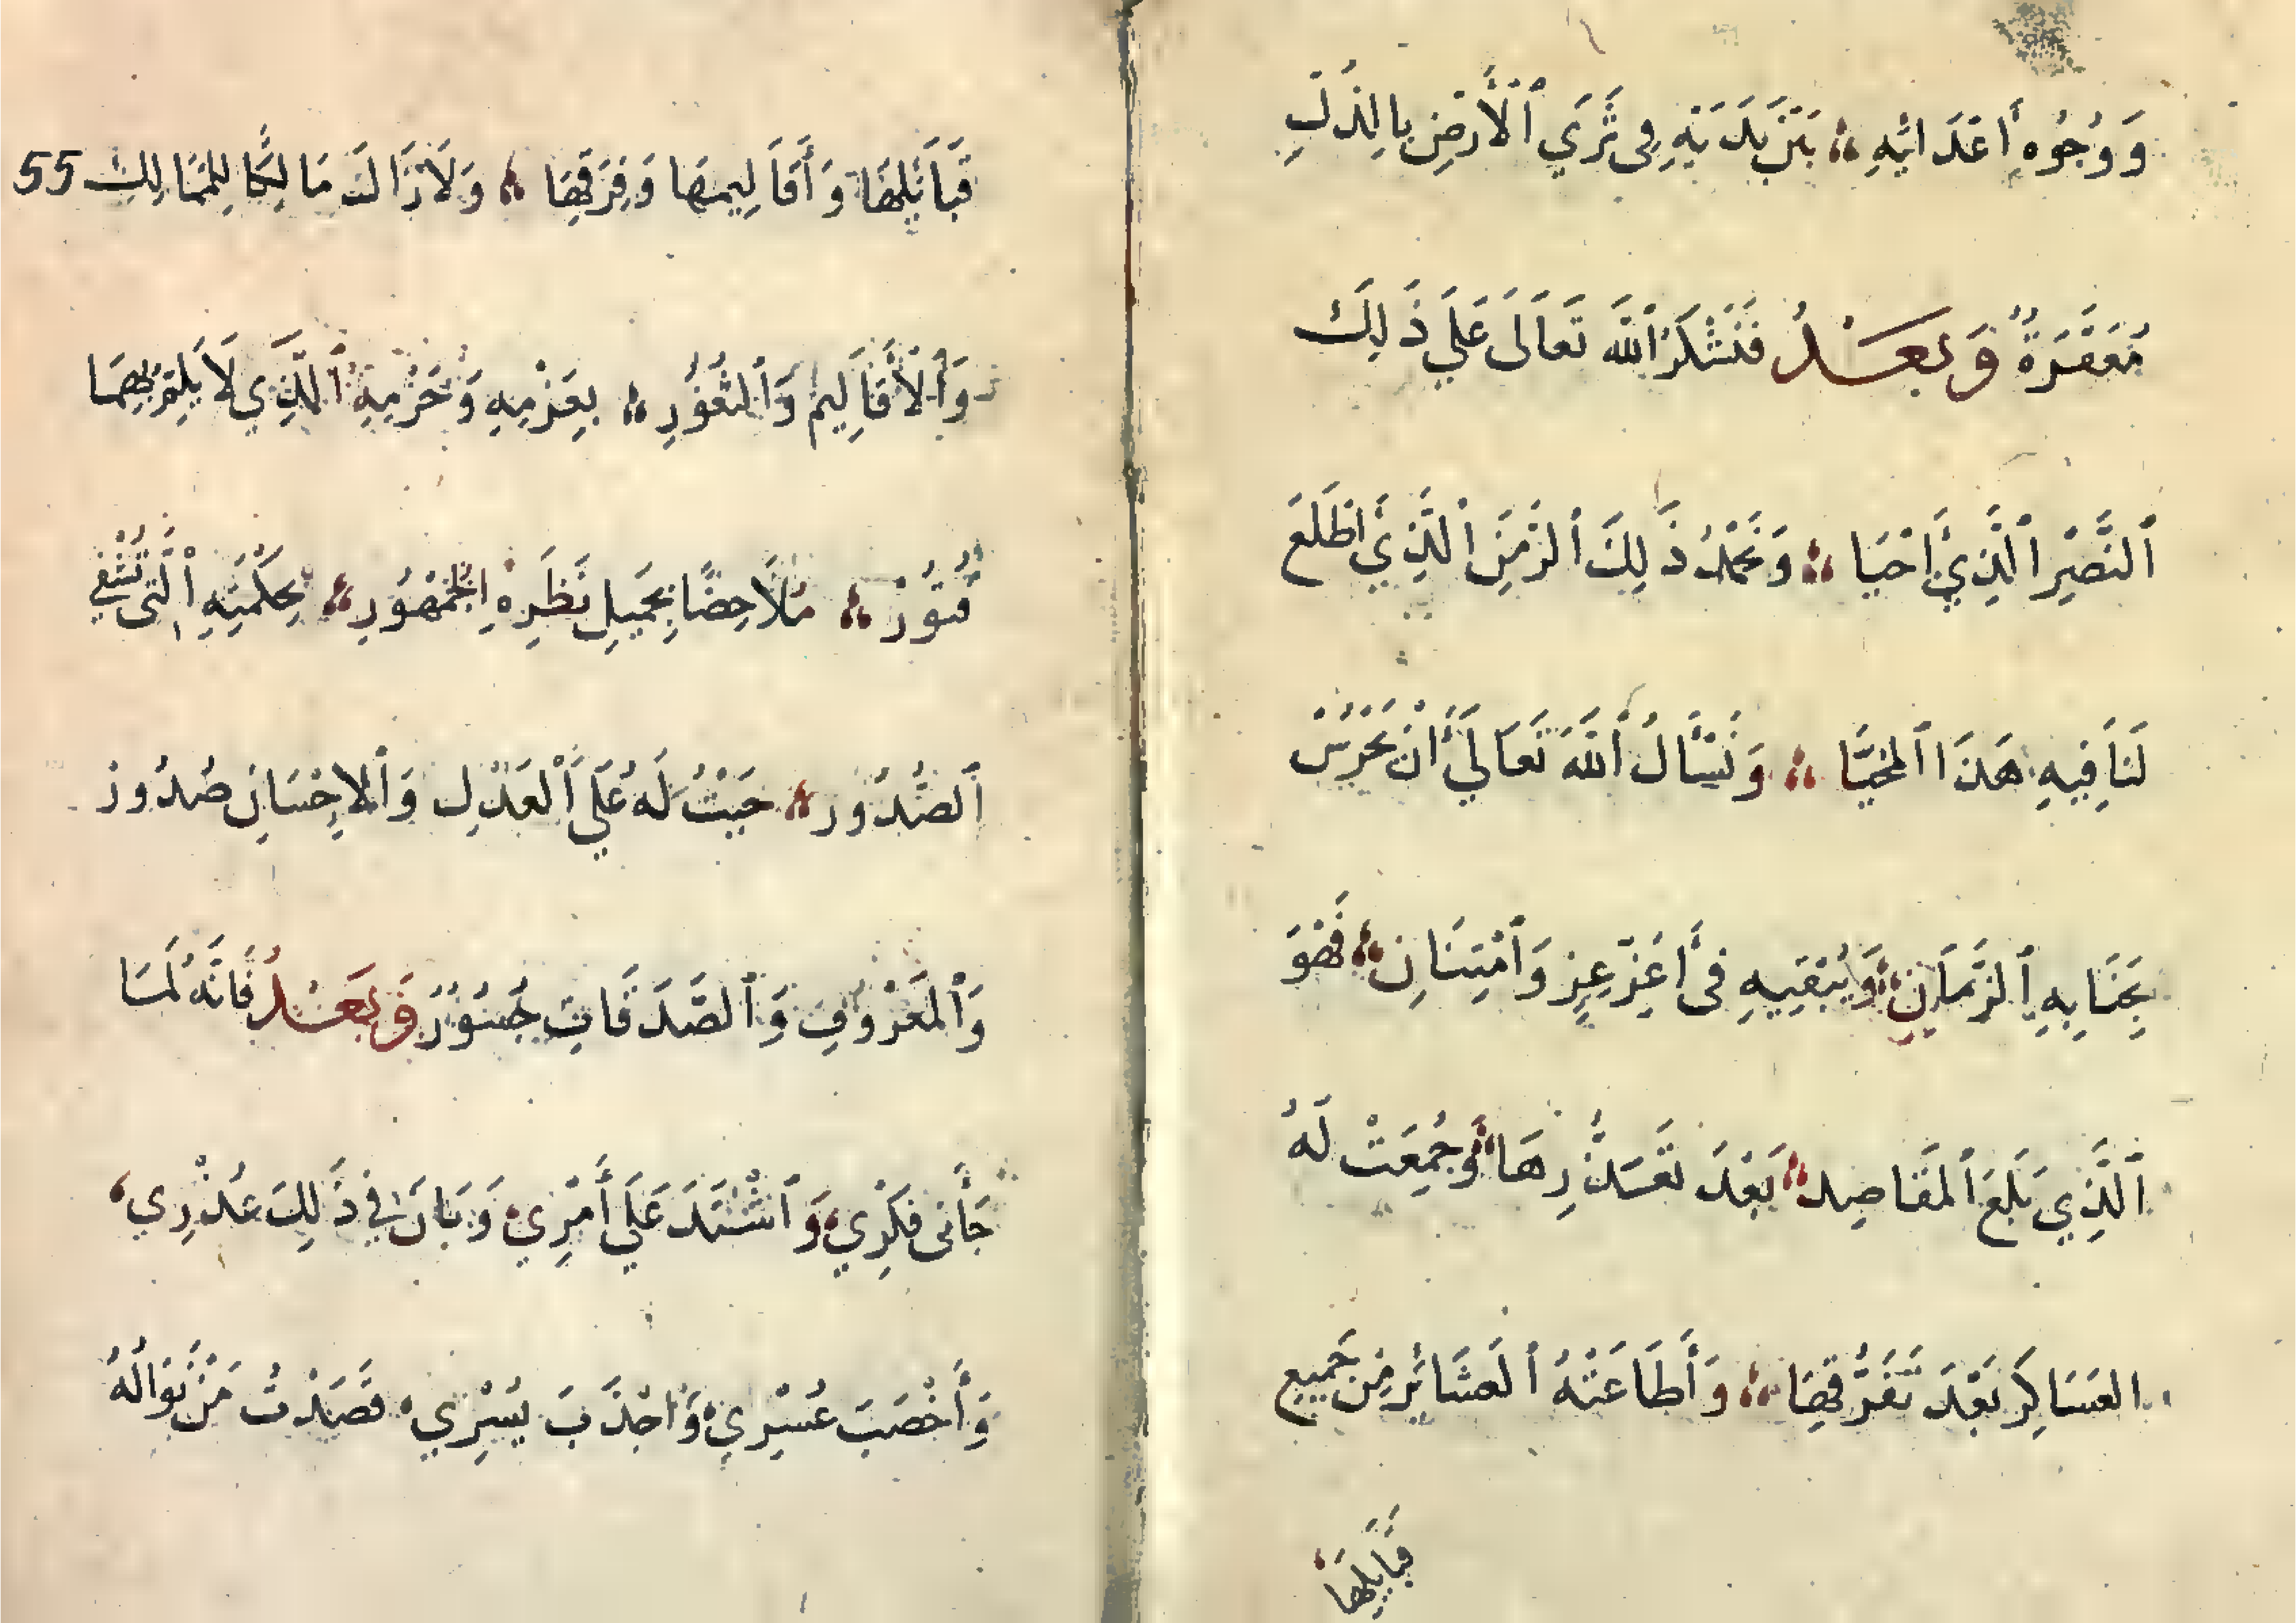 وَوُجُوه أَعْدَائِهِ ؞ بَيْنَ يَدَيْهِ فِي ثَرَي ٱلْأَرْضِ بِالذُّلِّ
مُعَفَّرَةٌ وَبَعْدُ فَنَشْكُرُ ٱللَّه تَعَالَى عَلَي ذَلِكَ
ٱلنَّصْرِ ٱلَّذِي أَحْيَا ؞ وَنَحْمَدُ ذَلِكَ ٱلزَّمَنَ ٱلَّذِي أَطْلَعَ
لَنَا فِيهِ هَذَا ٱلمُحَيَّا ؞ وَنَسْأَلُ ٱللَّهَ تَعَالَي أَنْ يَحْرُسَ
بِجَنَابِهِ ٱلزَّمَانِ ؞ وَيُبْقِيهِ فِي أَعَزِّ عِزٍ وَٱمْتِنَانِ ؞ فَهُوَ
ٱلَّذِي بَلَغَ ٱلمَقَاصِد ؞ بَعْدَ تَعَذُّرِهَا ؞ وَجُمِعَتْ لَهُ
العَسَاكِرُ بَعْدَ تَفَرُّقِهَا ؞ وَأَطَاعَتْهُ ٱلعَشَائِرُ مِنْ جَمِيعِ
قَبَايِلِهَا
قَبَائِلِهَا وَأَقَالِيمِهَا وَفِرَقِهَا ؞ وَلَا زَالَت مَالِكًا لِلمَمَالِكِ 55
وَٱلْأَقَالِيمِ وَٱلثُّغُورِ ؞ بِعَزْمِهِ وَحَزْمِهِ ٱلَّذِي لَا يَلِمُّ بِهِمَا
فُتُورٌ ؞ مُلَاحِضًا بِجَمِيلِ نَظَرِهِ الجُمْهُورِ ؞ بِحِكْمَتِهِ ٱلَّتِي تَشْفِي
ٱلصُّدُور ؞ حَيْثُ لَهُ عَلَي ٱلْعَدْلِ وَٱلإِحْسَانِ صُدُورٌ
وَٱلمَعْرُوفِ وَٱلصَّدَقَاتِ جُسُورٌ وَبَعْدُ فَانَّهُ لَمَا
جَأَنِي فِكْرِي وَٱشْتَدَّ عَلَي أَمْرِي وَبَانَ فِي ذَلِكَ عُذْرِي
وَأَخْصَبَ عُسْرِي وَاجْذَبَ يُسْرِي قَصَدْتُ مَنْ نَوَالُهُ